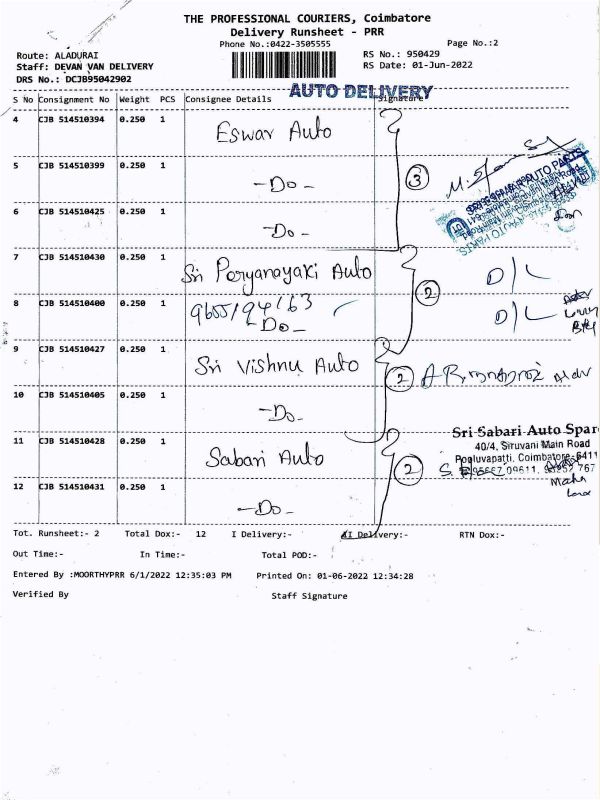 THE PROFESSIONAL COURIERS, Coimbatore
Delivery Runsheet - PRR
Phone No.:0422-3505555
Page No.:2
Route: ALADURAI
RS No.: 950429
Staff: DEVAN VAN DELIVERY
RS Date: 01-Jun-2022
DRS No.: DCJB95042902
AUTO DELIVERY
S No Consignment No Weight PCS Consignee Details Signature
4 CJB 514510394 0.250 1 Eswar Auto
5 CJB 514510399 0.250 1 -Do-
3
6 CJB 514510425 0.250 1 -Do-
7 CJB 514510430 0.250 1 Sri Periyanayaki Auto D/L
2
8 CJB 514510400 0.250 1 9655194163 D/L
-Do-
9 CJB 514510427 0.250 1 Sri Vishnu Auto
2
10 CJB 514510405 0.250 1 -Do-
11 CJB 514510428 0.250 1 Sabari Auto
2
Sri Sabari Auto Spar
40/4, Siruvani Main Road
Pooluvapatti, Coimbatore-6411
12 CJB 514510431 0.250 1 -Do-
Tot. Runsheet:- 2 Total Dox:- 12 I Delivery:- AI Delivery:- RTN Dox:-
Out Time:- In Time:- Total POD:-
Entered By :MOORTHYPRR 6/1/2022 12:35:03 PM Printed On: 01-06-2022 12:34:28
Verified By Staff Signature